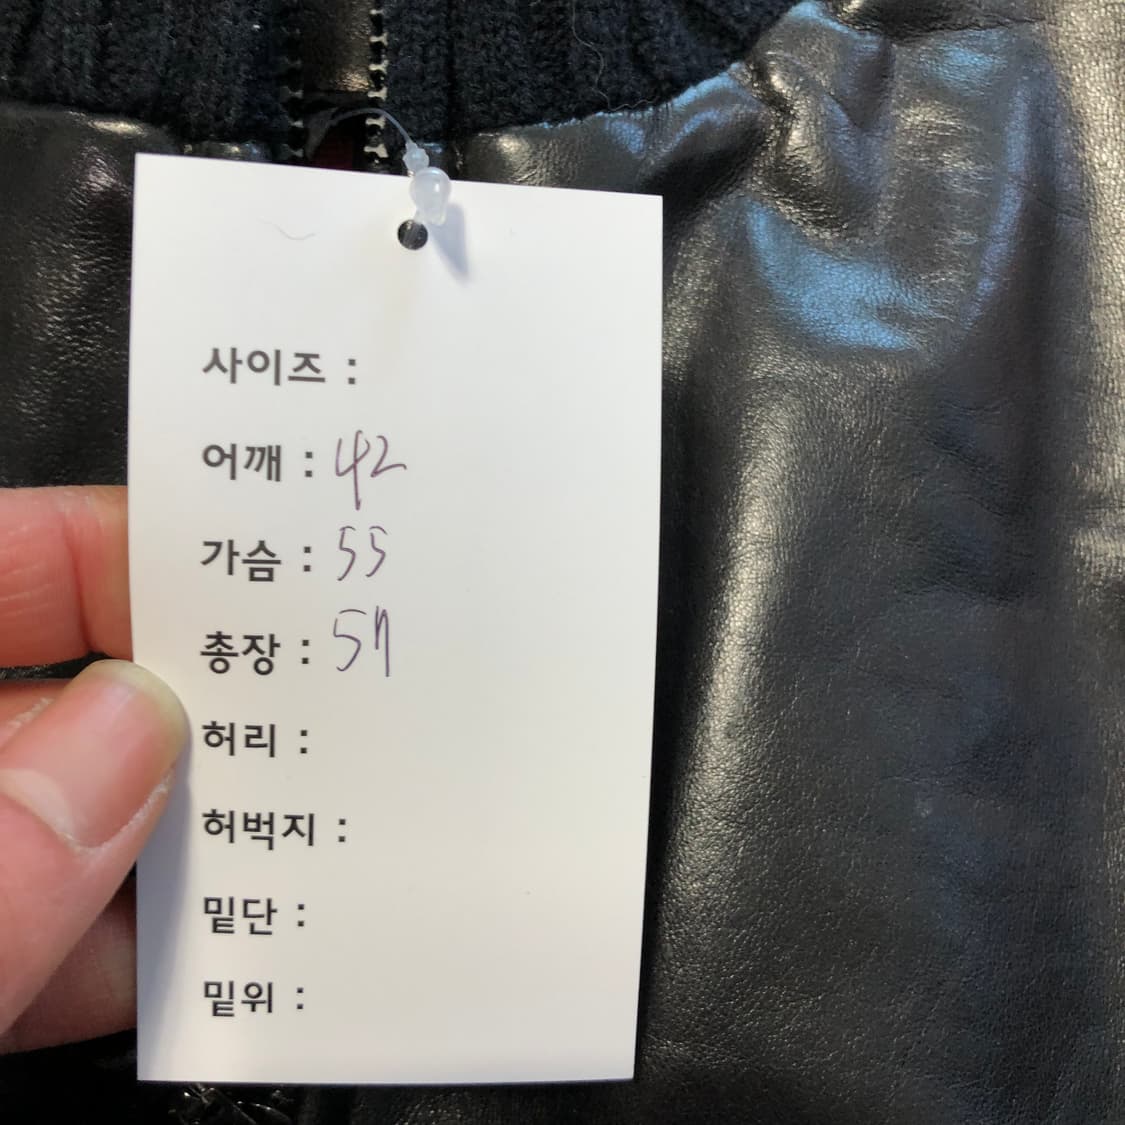 사이즈 :
어깨 : 42
가슴 : 55
총장 : 57
허리 :
허벅지 :
밑단 :
밑위 :